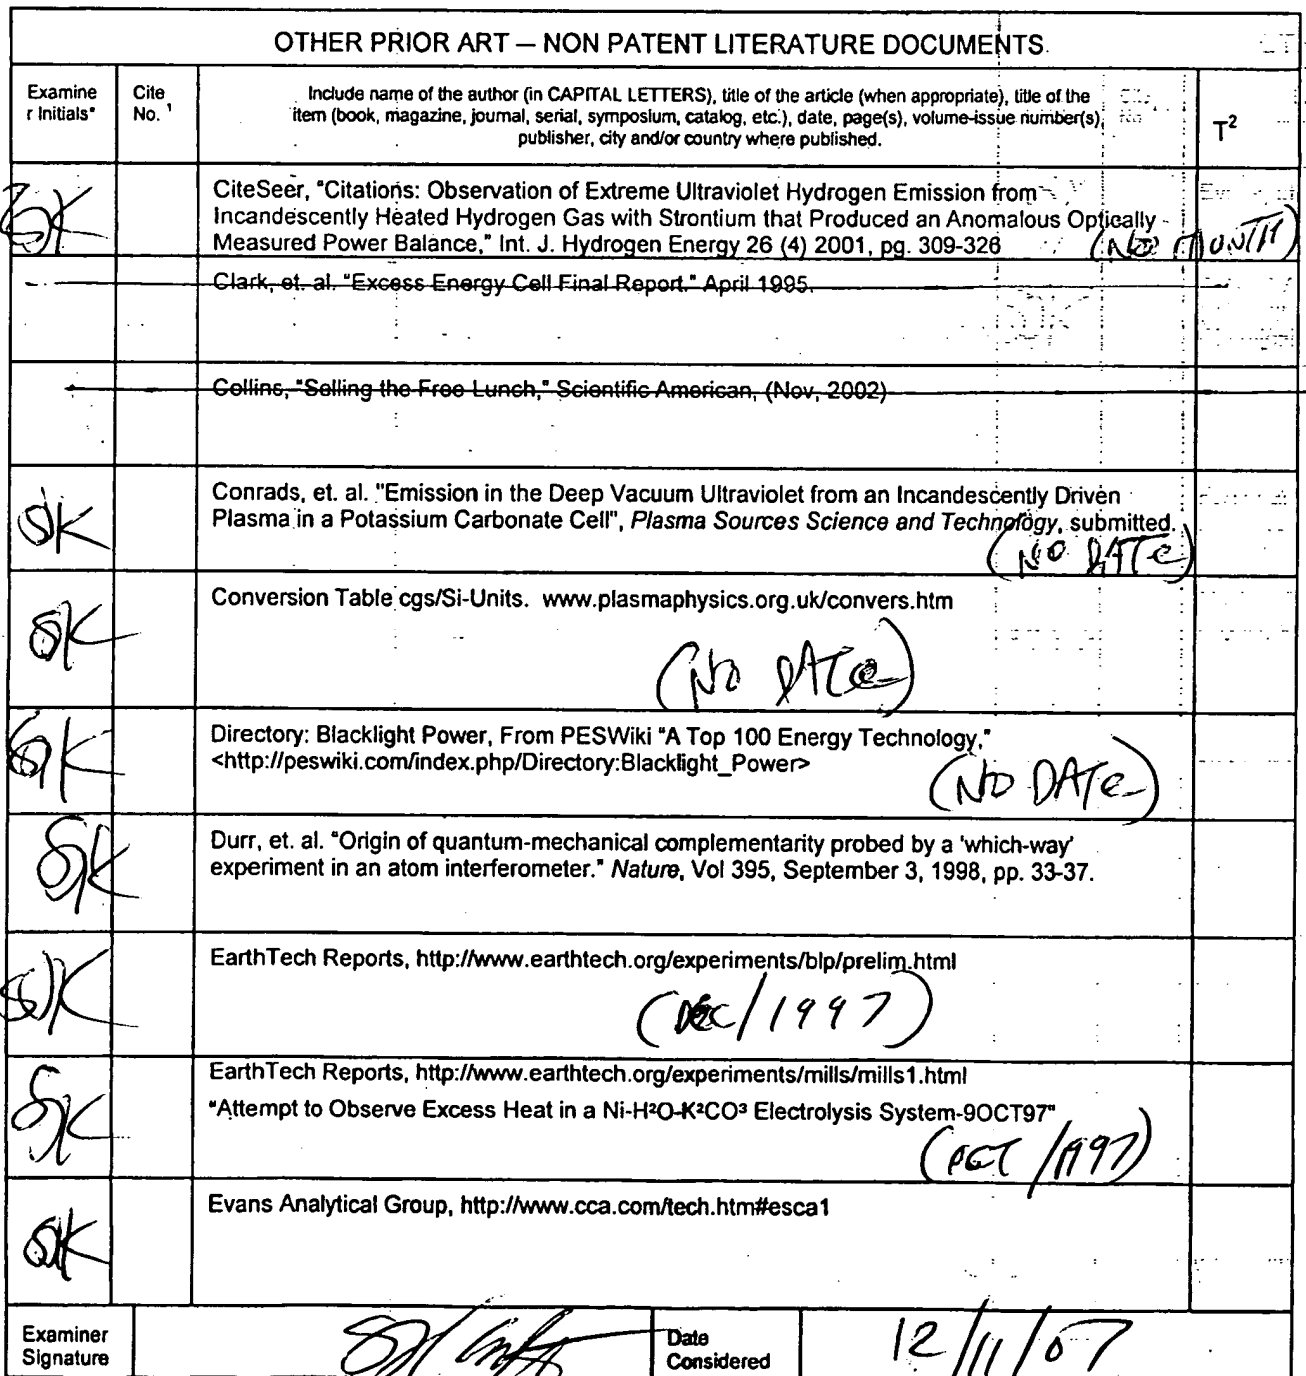 OTHER PRIOR ART — NON PATENT LITERATURE DOCUMENTS
Examine
r Initials*
Cite
No. ¹
Include name of the author (in CAPITAL LETTERS), title of the article (when appropriate), title of the
item (book, magazine, journal, serial, symposium, catalog, etc.), date, page(s), volume-issue number(s),
publisher, city and/or country where published.
T²
SK
CiteSeer, "Citations: Observation of Extreme Ultraviolet Hydrogen Emission from
Incandescently Heated Hydrogen Gas with Strontium that Produced an Anomalous Optically
Measured Power Balance," Int. J. Hydrogen Energy 26 (4) 2001, pg. 309-326
(NO MONTH)
Clark, et. al. "Excess Energy Cell Final Report." April 1995.
Collins, "Selling the Free Lunch," Scientific American, (Nov, 2002)
SK
Conrads, et. al. "Emission in the Deep Vacuum Ultraviolet from an Incandescently Driven
Plasma in a Potassium Carbonate Cell", Plasma Sources Science and Technology, submitted.
(NO DATE)
SK
Conversion Table cgs/Si-Units. www.plasmaphysics.org.uk/convers.htm
(NO DATE)
SK
Directory: Blacklight Power, From PESWiki "A Top 100 Energy Technology,"
<http://peswiki.com/index.php/Directory:Blacklight_Power>
(NO DATE)
SK
Durr, et. al. "Origin of quantum-mechanical complementarity probed by a 'which-way'
experiment in an atom interferometer." Nature, Vol 395, September 3, 1998, pp. 33-37.
SK
EarthTech Reports, http://www.earthtech.org/experiments/blp/prelim.html
(DEC/1997)
SK
EarthTech Reports, http://www.earthtech.org/experiments/mills/mills1.html
"Attempt to Observe Excess Heat in a Ni-H²O-K²CO³ Electrolysis System-9OCT97"
(OCT/1997)
SK
Evans Analytical Group, http://www.cca.com/tech.htm#esca1
Examiner
Signature
Date
Considered
12/11/07